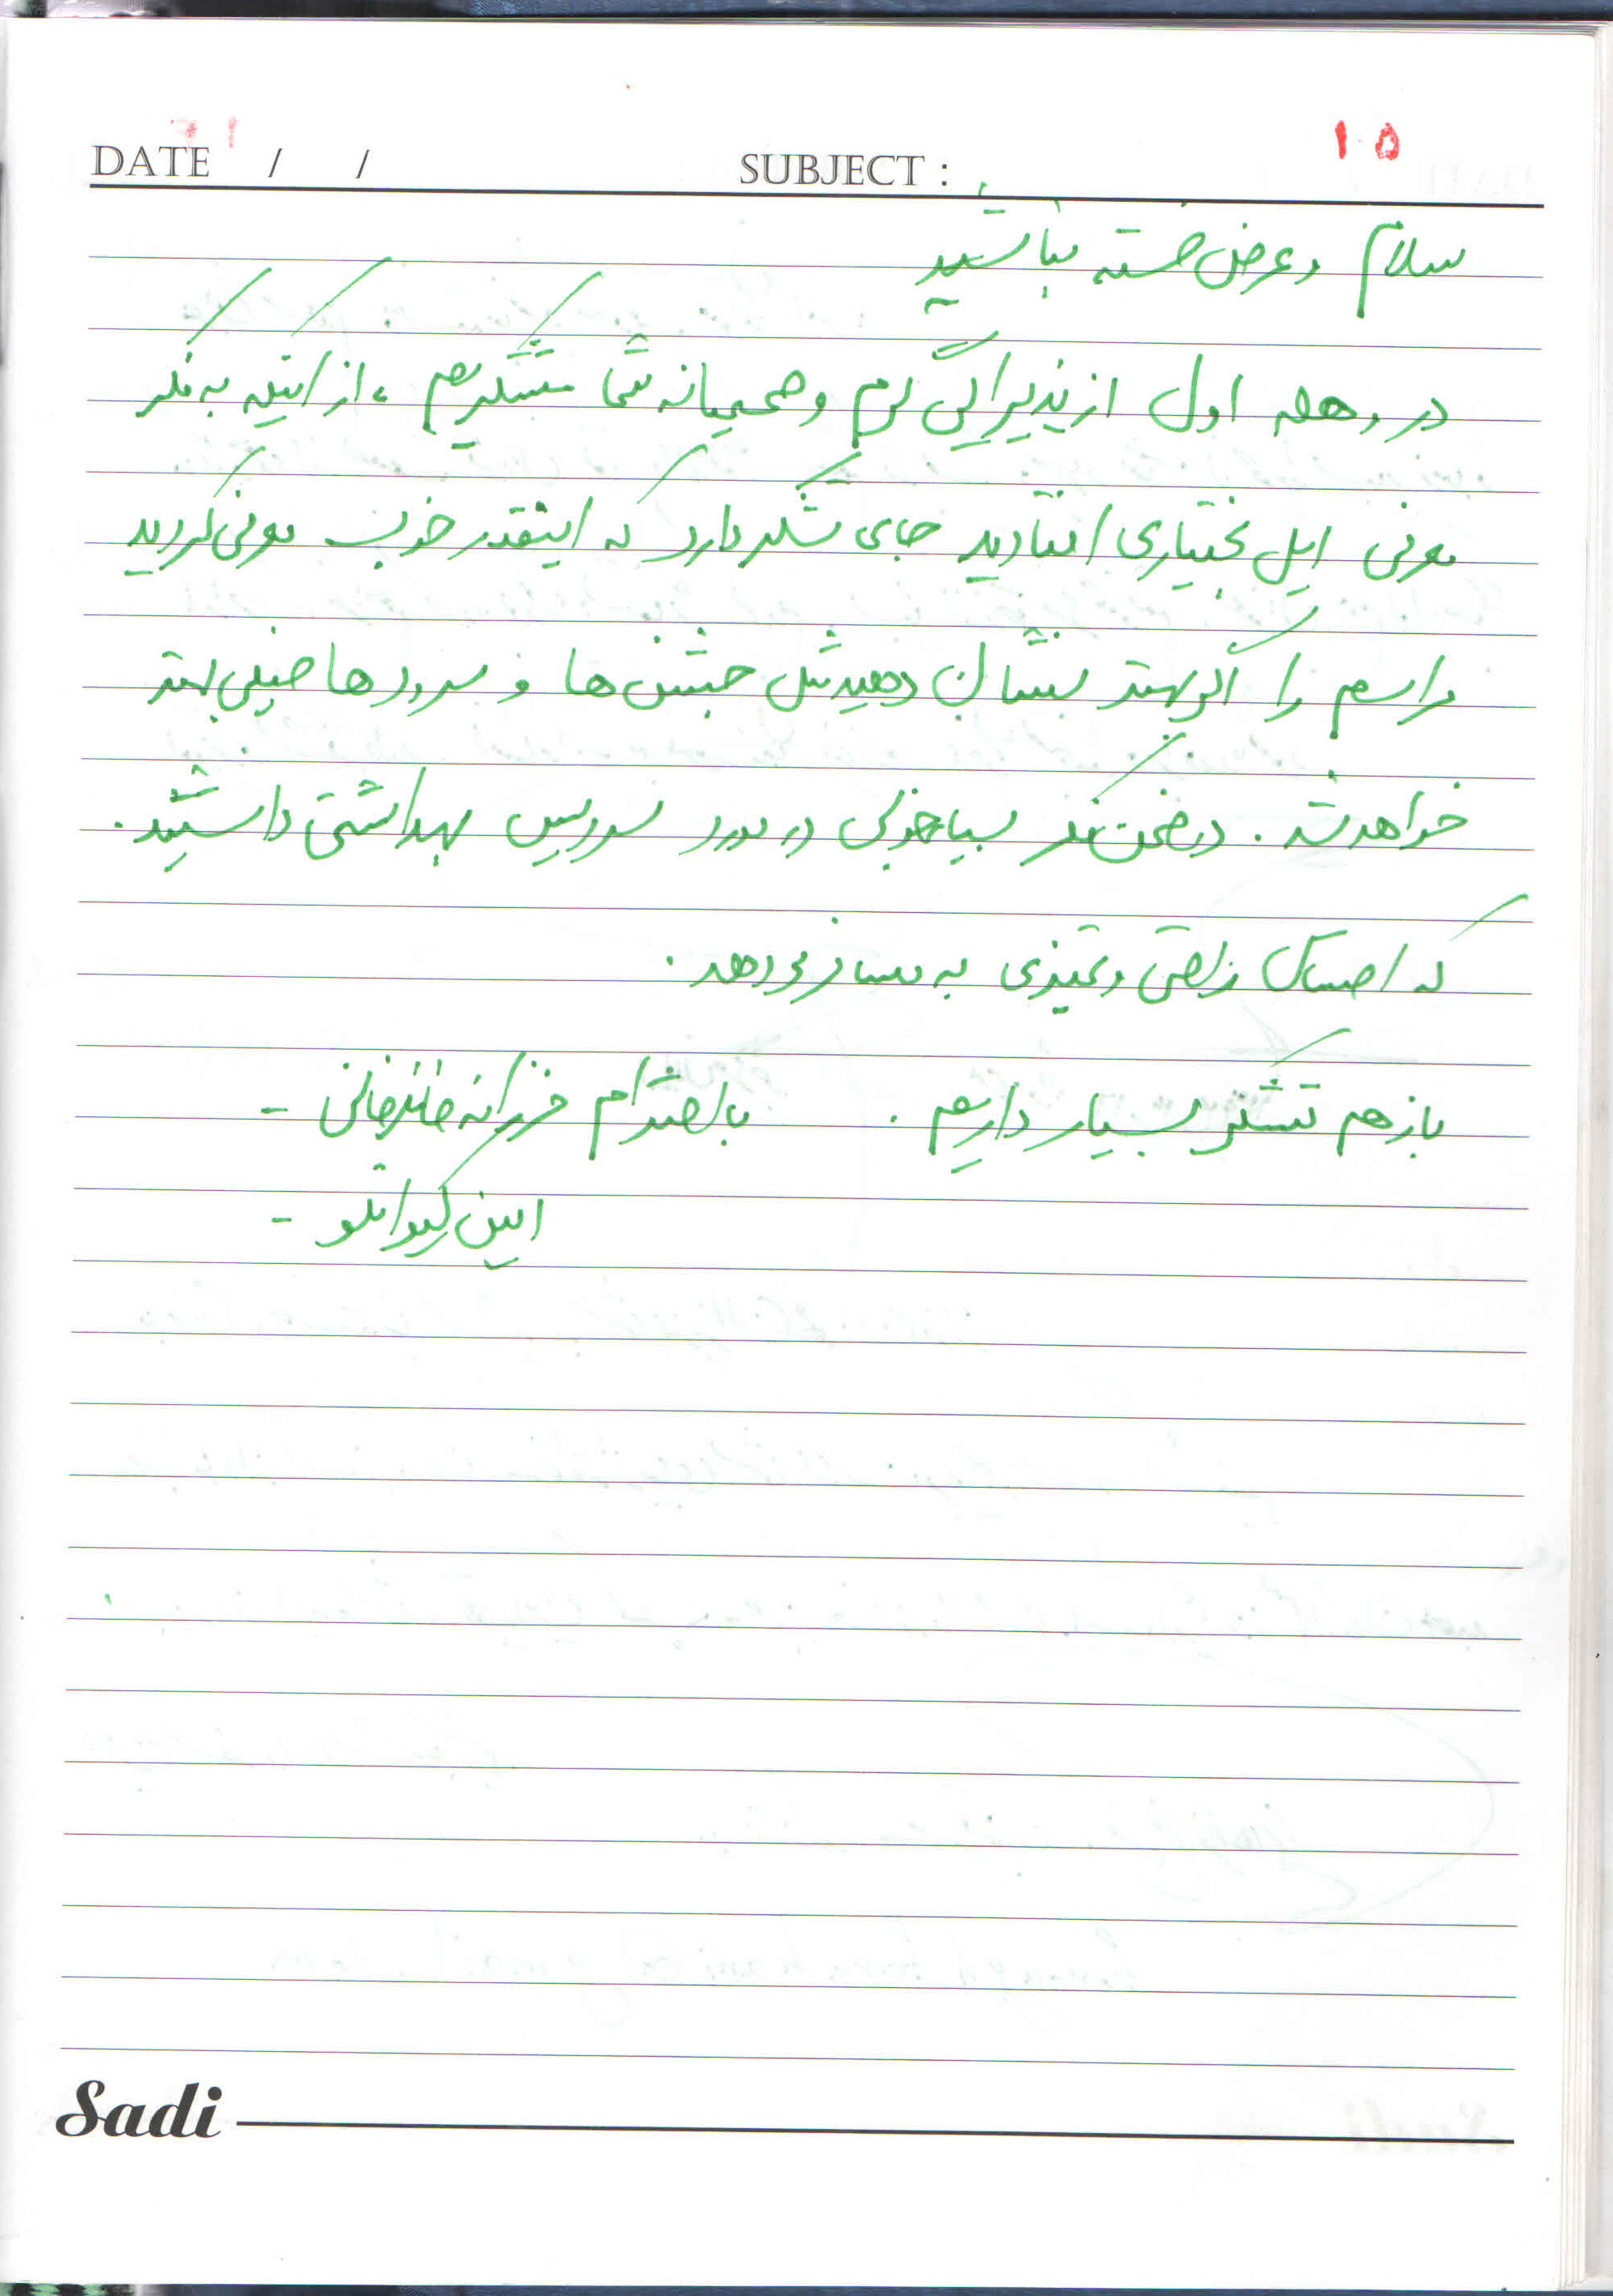 ۱۵
DATE / /
SUBJECT :
سلام و عرض خسته نباشید
در وهله اول از پذیرایی گرم و صمیمانه شما متشکریم، از اینکه به فکر
معرفی ایل بختیاری افتادید جای تشکر دارد که اینقدر خوب معرفی کردید
مراسم را اگر بهتر نشان دهید مثل جشن ها و سرودها خیلی بهتر
خواهد شد. در ضمن فکر بسیار خوبی در مورد سرویس بهداشتی داشتید.
که احساس راحتی و تمیزی به مسافر می دهد.
بازهم تشکر بسیار داریم. بااحترام فرزانه خانلرخانی -
امین
Sadi